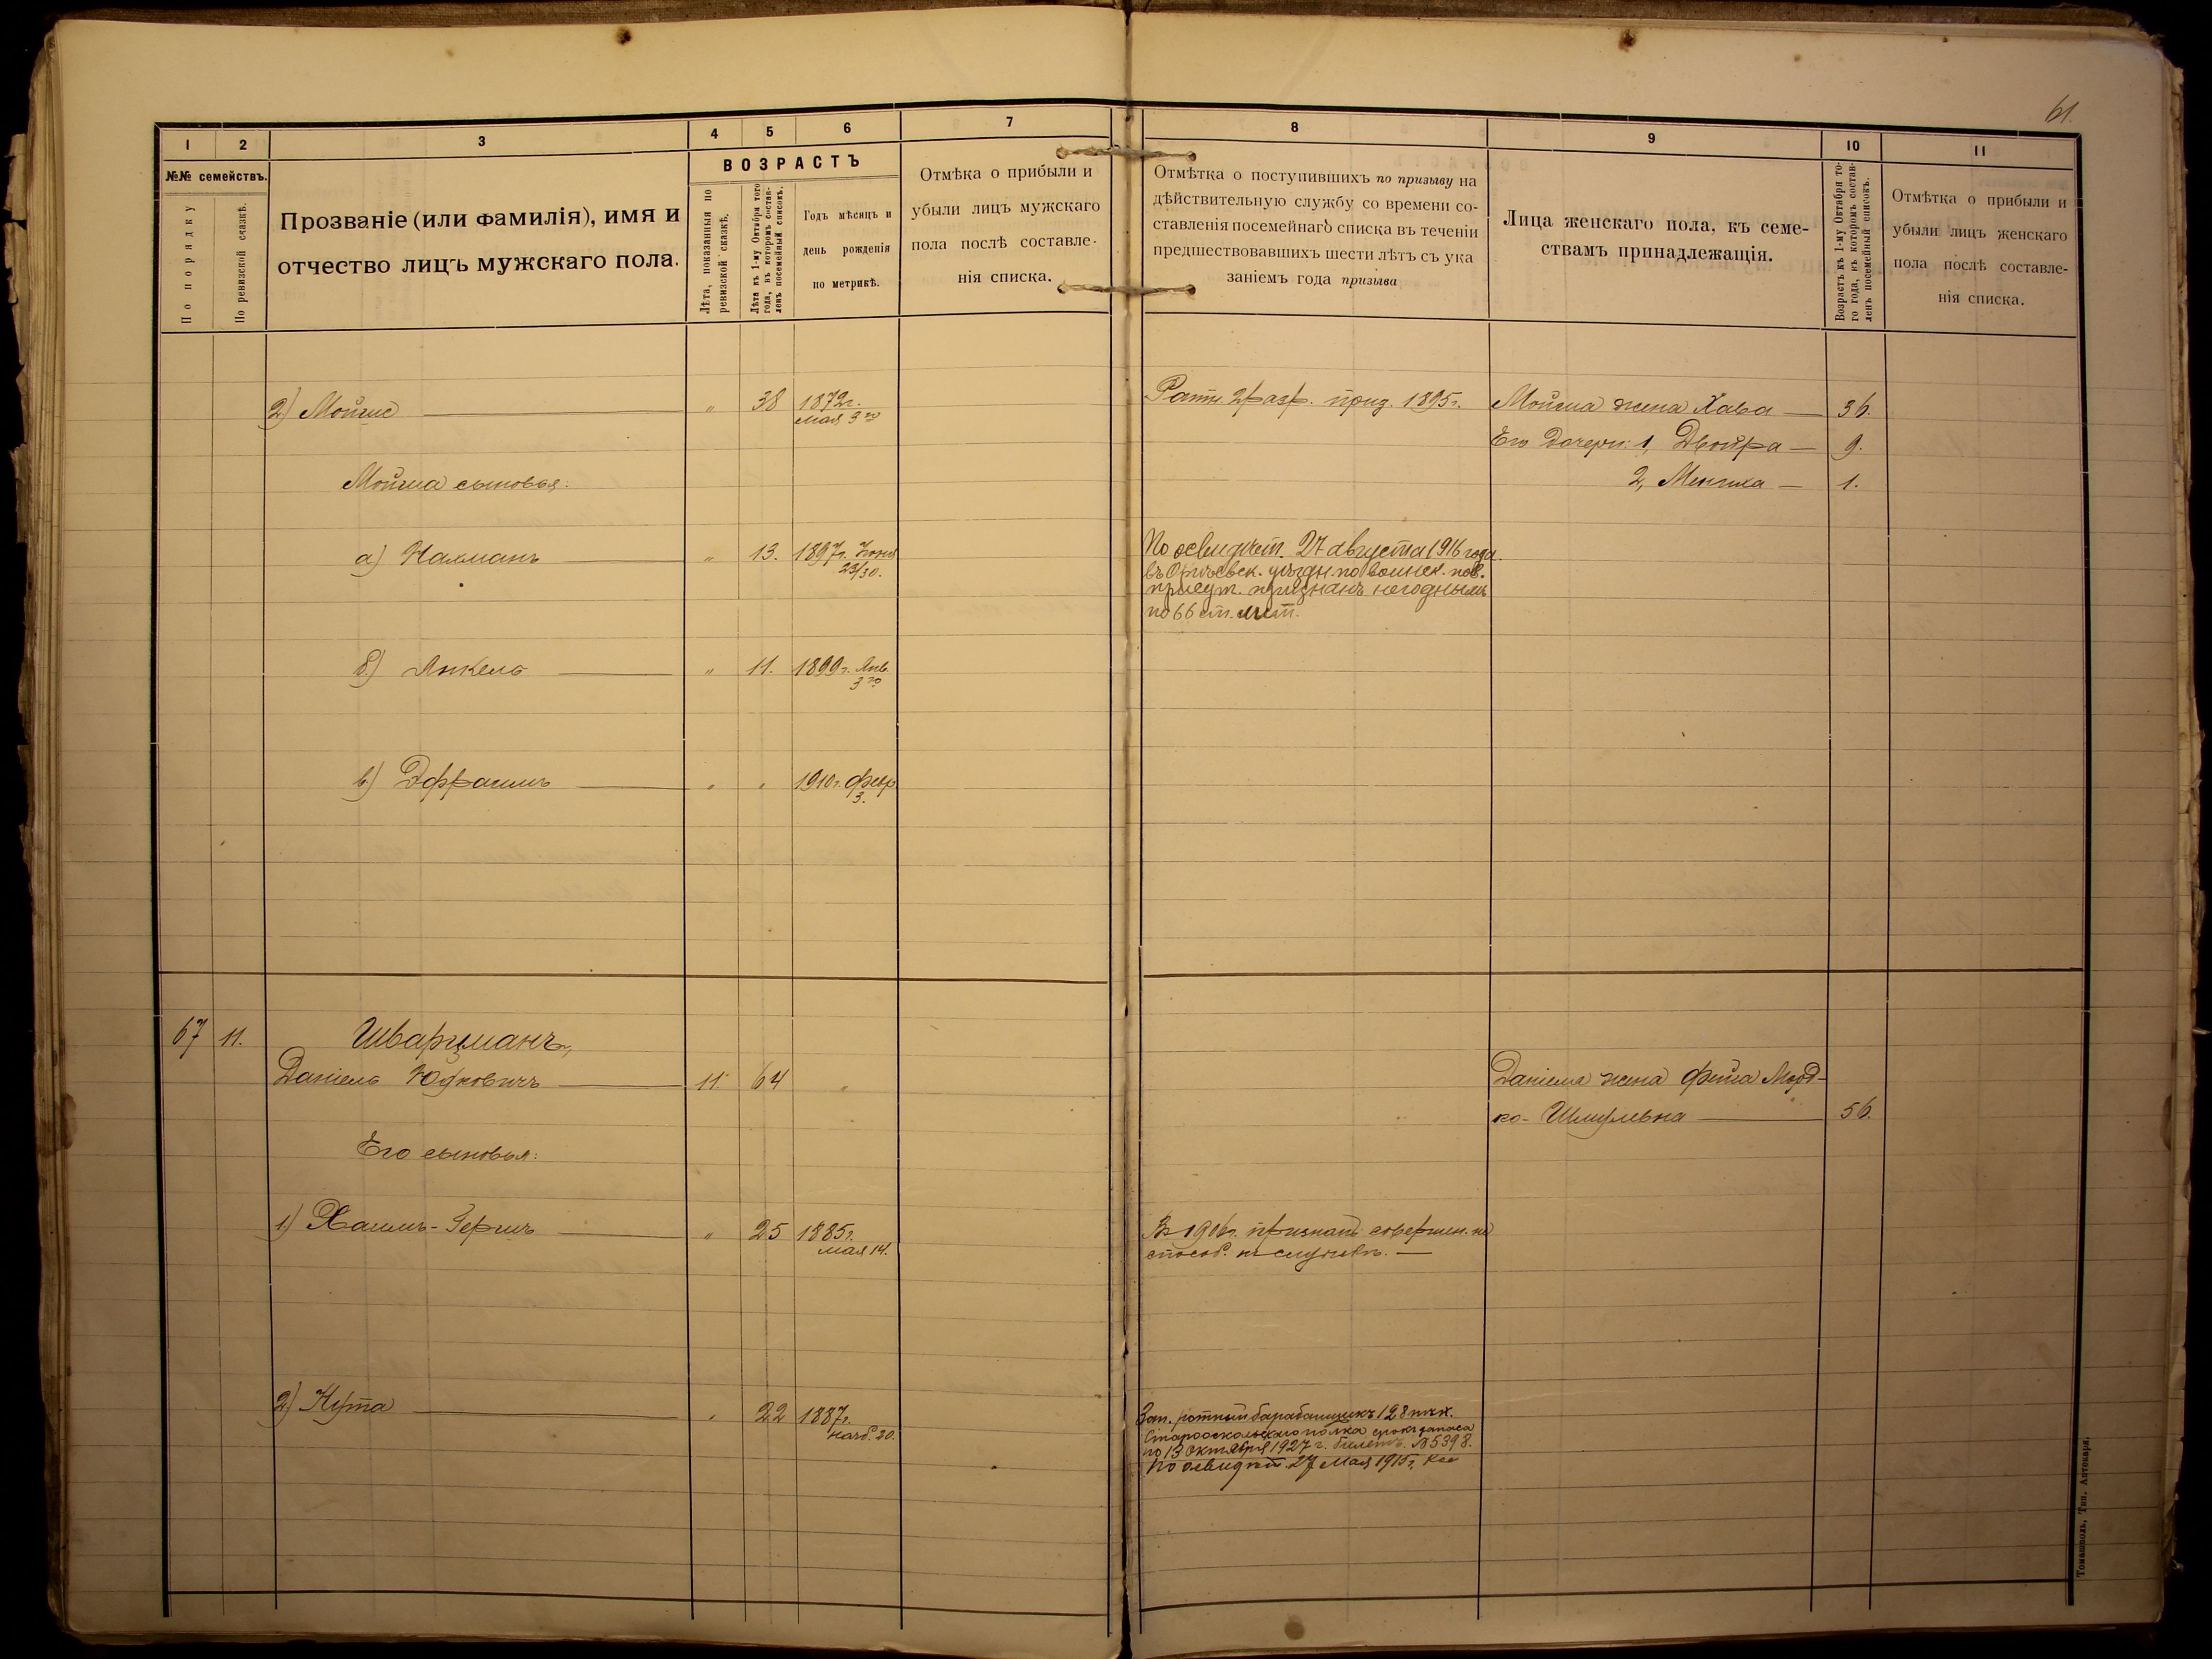 61.
1
2
3
4
5
6
7
8
9
10
11
№№ семействъ.
По порядку
По ревизской сказкѣ.
Прозваніе (или фамилія), имя и
отчество лицъ мужскаго пола.
ВОЗРАСТЪ
Лѣта, показанныя по
ревизской сказкѣ.
Лѣта къ 1-му Октября того
года, въ которомъ состав-
ленъ посемейный списокъ.
Годъ мѣсяцъ и
день рожденія
по метрикѣ.
Отмѣка о прибыли и
убыли лицъ мужскаго
пола послѣ составле-
нія списка.
Отмѣтка о поступившихъ по призыву на
дѣйствительную службу со времени со-
ставленія посемейнаго списка въ теченіи
предшествовавшихъ шести лѣтъ съ ука
заніемъ года призыва
Лица женскаго пола, къ семе-
ствамъ принадлежащія.
Возрастъ къ 1-му Октября то-
го года, въ которомъ состав-
ленъ посемейный списокъ.
Отмѣтка о прибыли и
убыли лицъ женскаго
пола послѣ составле-
нія списка.
2) Мойше — " 38 1872г.
мая 3го
Ратн. 2 разр. приз. 1895г.
Мойша жена Хава — 36.
Его дочери: 1, Двойра — 9.
2, — 1.
Мойша сыновья:
а) Нахманъ — " 13. 1897г. Іюня
23/30.
По освидѣт. 27 августа 1916 года
въ уѣздн. по воинск. пов.
присут. признанъ негоднымъ
по 66 ст. лит.
б) Янкель — " 11. 1899г. Янв.
3го
в) Эфраимъ — " " 1910г. Февр.
3.
67 11. Шварцманъ,
Даніель Юдковичъ — 11. 64 "
Даніеля жена Фейга Мord-
ко-Шмулевна — 56.
Его сыновья:
1) Хаимъ-Гершъ — " 25 1885г.
мая 14.
Въ 1906г. признанъ совершен. не
способ. къ службѣ. —
2) Нута — " 22 1887г.
нояб. 20.
Зап. ротный барабанщикъ 128 пѣх.
Старооскольскаго полка срокъ запаса
по 13 октября 1927 г. билетъ. № 5398.
По освидѣт. 27 Мая 1915г.
Томашполь, Тип. Аптекаря.